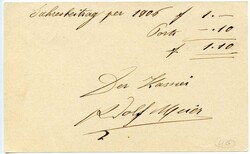 Jahresbeitrag per 1906 f 1.—
Porto —.10
f 1.10
Der Kassier
Adolf Meier